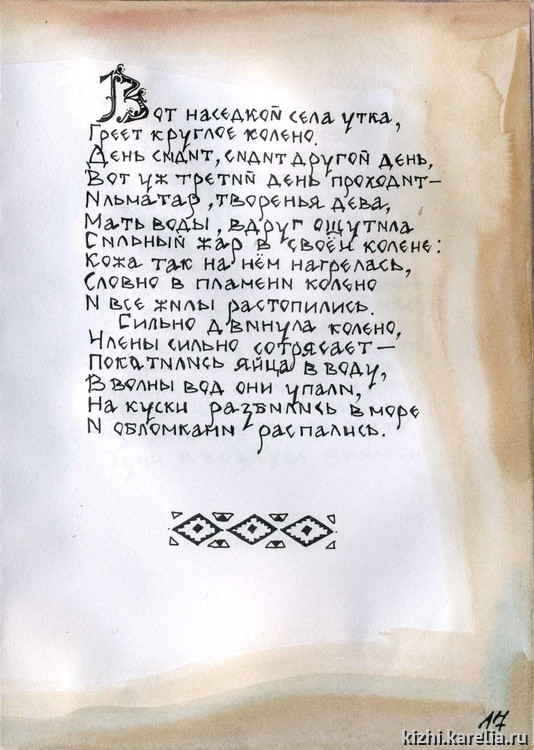 Вот наседкой села утка,
Греет круглое колено.
День сидит, сидит другой день,
Вот уж третий день проходит —
Ильматар, творенья дева,
Мать воды, вдруг ощутила
Сильный жар в своём колене:
Кожа так на нём нагрелась,
Словно в пламени колено
И все жилы растопились.
Сильно двинула колено,
Члены сильно сотрясает —
Покатились яйца в воду,
В волны вод они упали,
На куски разбились в море
И обломками распались.
17
kizhi.karelia.ru